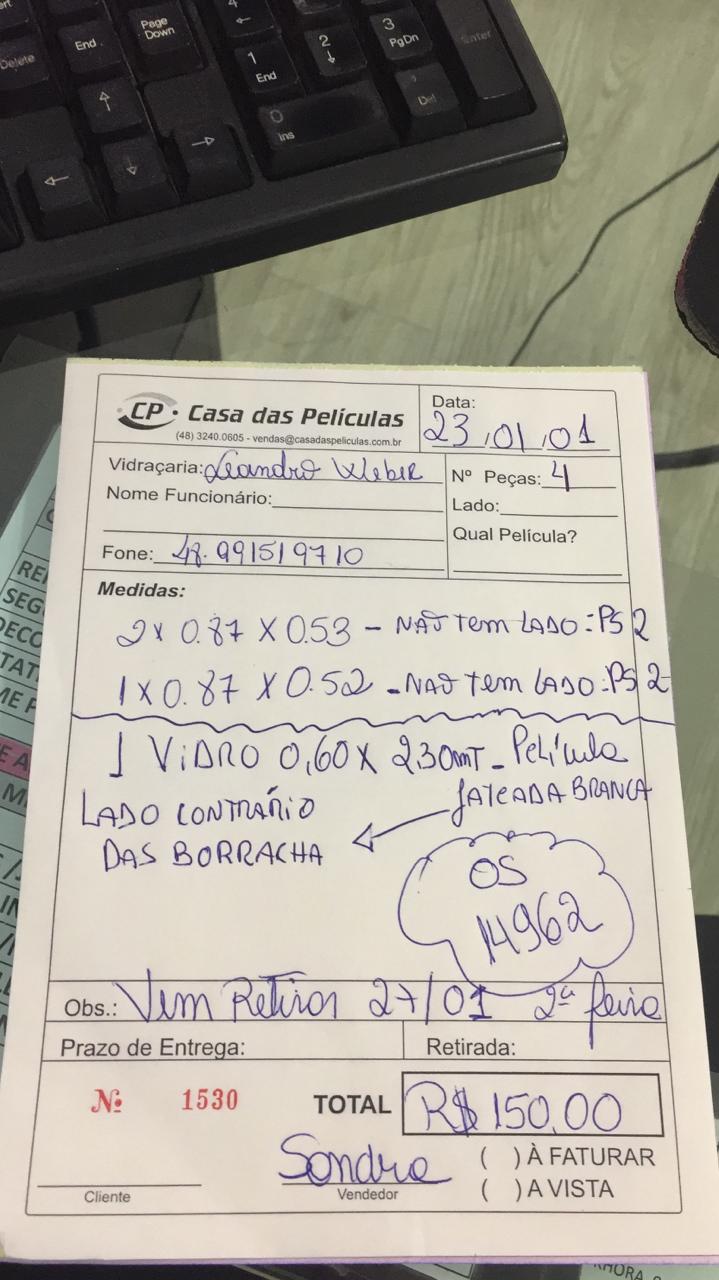 Page Down
End
Delete
4
1
End
2
3
PgDn
Enter
0
Ins
Del
CP Casa das Películas
(48) 3240.0605 - vendas@casadaspeliculas.com.br
Data: 23/01/01
Vidraçaria: Leandro Kleber
Nº Peças: 4
Nome Funcionário:
Lado:
Qual Película?
Fone: 48.991519710
Medidas:
2x 0.87 X 0.53 - NÃO TEM LADO: PS 2
1 X 0.87 X 0.52 - NÃO TEM LADO: PS 2
1 VIDRO 0,60 X 2,30mT - Película
JATEADA BRANCA
LADO CONTRÁRIO
DAS BORRACHA
OS
14962
Obs.: Vem Retirar 27/01 2ª feira
Prazo de Entrega:
Retirada:
Nº 1530
TOTAL R$ 150,00
Sandra
( ) À FATURAR
( ) A VISTA
Cliente
Vendedor